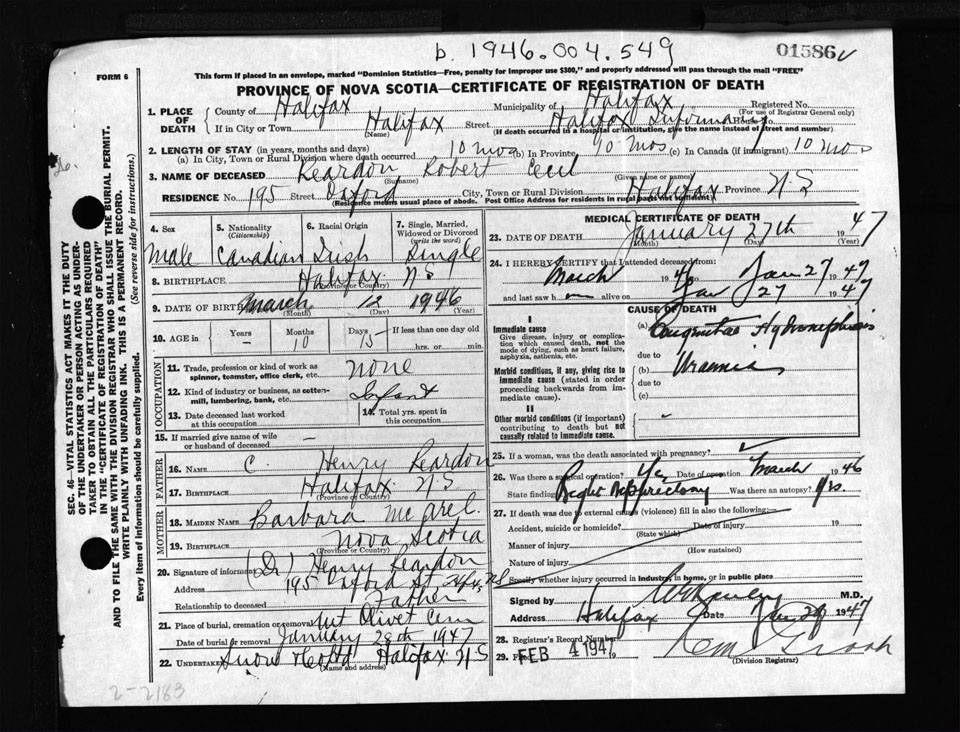 b. 1946.004.549
01586
FORM 6
This form if placed in an envelope, marked "Dominion Statistics—Free, penalty for improper use $300," and properly addressed will pass through the mail "FREE"
PROVINCE OF NOVA SCOTIA—CERTIFICATE OF REGISTRATION OF DEATH
SEC. 46—VITAL STATISTICS ACT MAKES IT THE DUTY
OF THE UNDERTAKER OR PERSON ACTING AS UNDER-
TAKER TO OBTAIN ALL THE PARTICULARS REQUIRED
IN THE "CERTIFICATE OF REGISTRATION OF DEATH"
AND TO FILE THE SAME WITH THE DIVISION REGISTRAR WHO SHALL ISSUE THE BURIAL PERMIT.
WRITE PLAINLY WITH UNFADING INK. THIS IS A PERMANENT RECORD.
Every item of information should be carefully supplied. (See reverse side for instructions.)
1. PLACE OF DEATH County of Halifax Municipality of Halifax Registered No.
(For use of Registrar General only)
If in City or Town Halifax Street Halifax Infirmary House No.
(Name) (If death occurred in a hospital or institution, give the name instead of street and number)
2. LENGTH OF STAY (in years, months and days)
(a) In City, Town or Rural Division where death occurred 10 mos (b) In Province 10 mos (c) In Canada (if immigrant) 10 mos
3. NAME OF DECEASED Reardon Robert Cecil
(Surname) (Given name or names)
RESIDENCE No. 195 Street Oxford City, Town or Rural Division Halifax Province N S
(Residence means usual place of abode. Post Office Address for residents in rural parts not sufficient)
4. Sex 5. Nationality (Citizenship) 6. Racial Origin 7. Single, Married, Widowed or Divorced (write the word)
Male Canadian Irish Single
8. BIRTHPLACE Halifax N S
(Province or Country)
9. DATE OF BIRTH March 12 1946
(Month) (Day) (Year)
10. AGE in Years Months Days If less than one day old
— 10 15 hrs. or min.
OCCUPATION
11. Trade, profession or kind of work as spinner, teamster, office clerk, etc. none
12. Kind of industry or business, as cotten-mill, lumbering, bank, etc. Infant
13. Date deceased last worked at this occupation
14. Total yrs. spent in this occupation
15. If married give name of wife or husband of deceased —
FATHER
16. NAME C. Henry Reardon
17. BIRTHPLACE Halifax N S
(Province or Country)
MOTHER
18. MAIDEN NAME Barbara
19. BIRTHPLACE Nova Scotia
(Province or Country)
20. Signature of informant (Dr) Henry Reardon
Address 195 Oxford St. Hfx, NS
Relationship to deceased Father
21. Place of burial, cremation or removal Mt Olivet Cem
Date of burial or removal January 29th 1947
22. Undertaker Snow & Co Ltd Halifax N S
(Name and address)
MEDICAL CERTIFICATE OF DEATH
23. DATE OF DEATH January 27th 1947
(Month) (Day) (Year)
24. I HEREBY CERTIFY that I attended deceased from:
March 46 to Jan 27 1947
and last saw h im alive on Jan 27 1947
CAUSE OF DEATH
I
Immediate cause
Give disease, injury or complication which caused death, not the mode of dying, such as heart failure, asphyxia, asthenia, etc.
(a) Congenital Hydronephrosis
due to
Morbid conditions, if any, giving rise to immediate cause (stated in order proceeding backwards from immediate cause).
(b) Uraemia
due to
(c)
II
Other morbid conditions (if important) contributing to death but not causally related to immediate cause.
25. If a woman, was the death associated with pregnancy?
26. Was there a surgical operation? Yes Date of operation March 1946
State finding Right Nephrectomy Was there an autopsy?
27. If death was due to external causes (violence) fill in also the following:
Accident, suicide or homicide? Date of injury 19
(State which)
Manner of injury
(How sustained)
Nature of injury
Specify whether injury occurred in industry, in home, or in public place
Signed by M.D.
Address Halifax Date Jan 29 1947
28. Registrar's Record Number
29. Filed FEB 4 1947 19
(Division Registrar)
2-2183